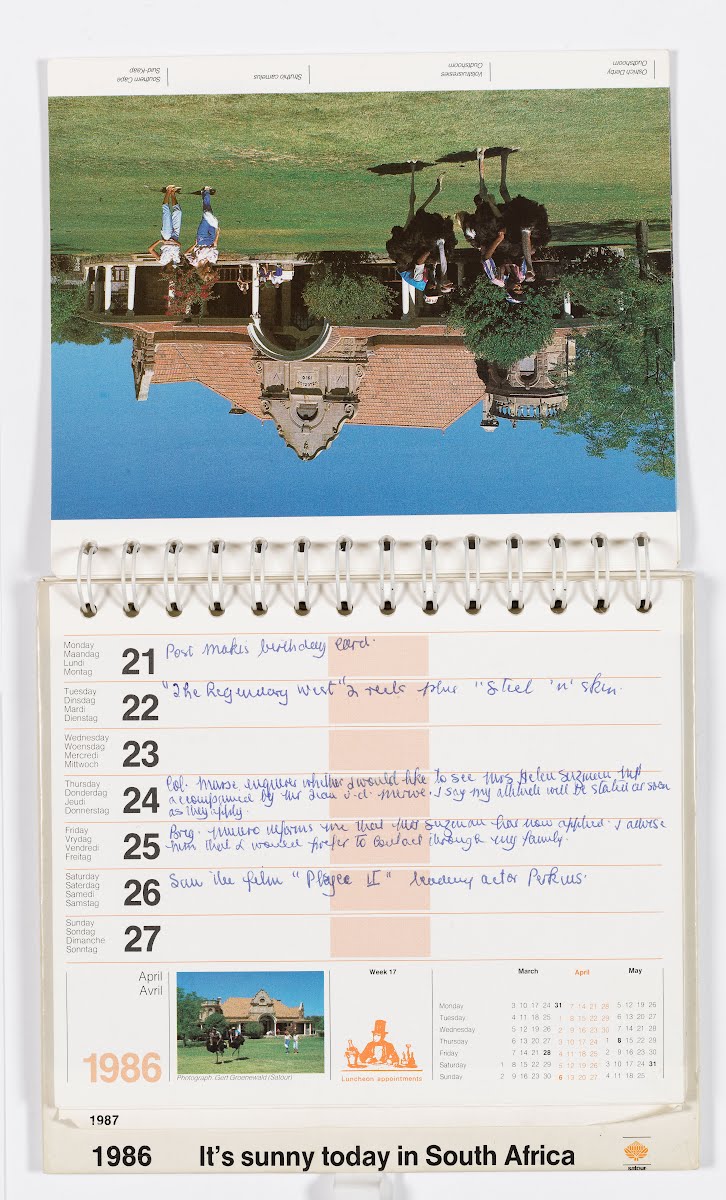 Southern Cape
Suid-Kaap
Struthio camelus
Volstruisresies
Oudtshoorn
Ostrich Derby
Oudtshoorn
Monday
Maandag
Lundi
Montag
21
Post Makis birthday card.
Tuesday
Dinsdag
Mardi
Dienstag
22
"The Legendary West" 2 reels plus "Steel 'n' skin.
Wednesday
Woensdag
Mercredi
Mittwoch
23
Thursday
Donderdag
Jeudi
Donnerstag
24
Col. Marse enquires whether I would like to see Mrs Helen Suzman MP
accompanied by Mr Tiaan v.d. Merwe. I say my attitude will be stated as soon
as they apply.
Friday
Vrydag
Vendredi
Freitag
25
Brig. Munro informs me that Mrs Suzman has now applied. I advise
him that I would prefer to contact through my family.
Saturday
Saterdag
Samedi
Samstag
26
Saw the film " II" leading actor Perkins.
Sunday
Sondag
Dimanche
Sonntag
27
April
Avril
1986
Photograph: Gert Groenewald (Satour)
Week 17
Luncheon appointments
March April May
Monday 3 10 17 24 31 7 14 21 28 5 12 19 26
Tuesday 4 11 18 25 1 8 15 22 29 6 13 20 27
Wednesday 5 12 19 26 2 9 16 23 30 7 14 21 28
Thursday 6 13 20 27 3 10 17 24 1 8 15 22 29
Friday 7 14 21 28 4 11 18 25 2 9 16 23 30
Saturday 1 8 15 22 29 5 12 19 26 3 10 17 24 31
Sunday 2 9 16 23 30 6 13 20 27 4 11 18 25
1987
1986 It's sunny today in South Africa
satour